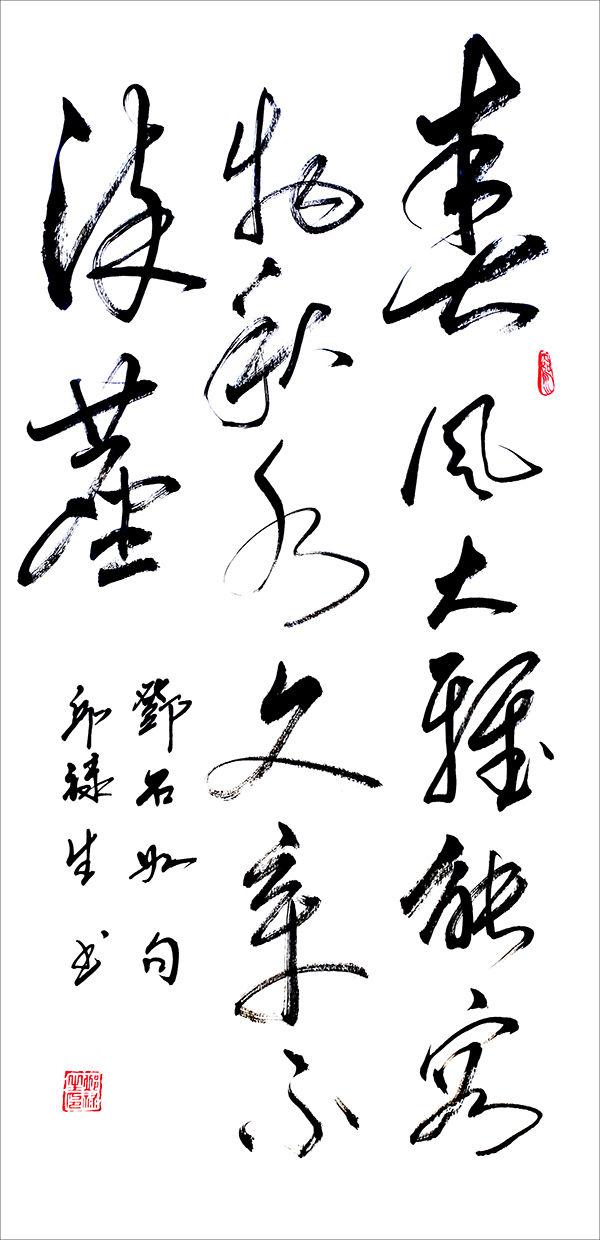 春風大雅能容
物秋水文章不
染塵
鄧石如句
邱禄生书